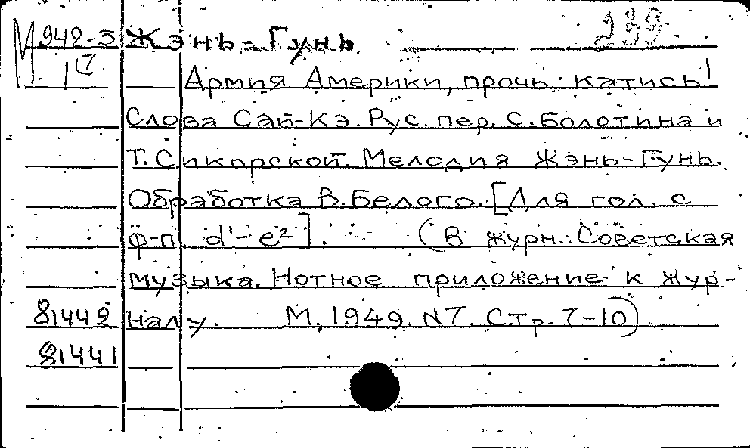 М 942-3 Жэнь-Гунь 239
17 Армия Америки, прочь катись!
Слова Сай-Кэ. Рус. пер. С. Болотина и
Т. Сикорской. Мелодия Жэнь-Гунь.
Обработка В. Белого. [Для гол. с
ф-п. d'-e²]. (В журн.: Советская
музыка. Нотное приложение к жур-
81449 налу. М, 1949. N7. Стр. 7-10)
81441